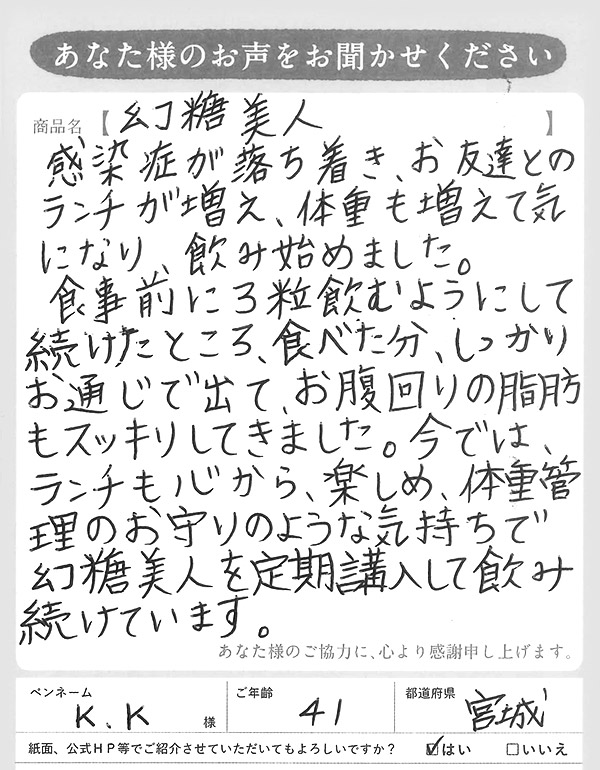 あなた様のお声をお聞かせください
商品名【幻糖美人】
感染症が落ち着き、お友達との
ランチが増え、体重も増えて気
になり、飲み始めました。
食事前に3粒飲むようにして
続けたところ、食べた分、しっかり
お通じで出て、お腹回りの脂肪
もスッキリしてきました。今では、
ランチも心から、楽しめ、体重管
理のお守りのような気持ちで
幻糖美人を定期講入して飲み
続けています。
あなた様のご協力に、心より感謝申し上げます。
ペンネーム K.K 様 ご年齢 41 都道府県 宮城
紙面、公式HP等でご紹介させていただいてもよろしいですか? ☑はい □いいえ